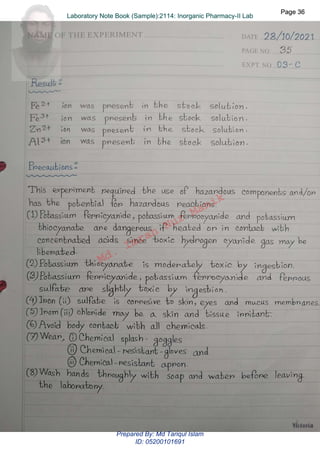 Laboratory Note Book (Sample):2114: Inorganic Pharmacy-II Lab
Page 36
NAME OF THE EXPERIMENT
DATE 28/10/2021
PAGE NO. 35
EXPT. NO. 03-C
Result:
Fe2+ ion was present in the stock solution.
Fe3+ ion was present in the stock solution.
Zn2+ ion was present in the stock solution.
Al3+ ion was present in the stock solution.
Precautions:
This experiment required the use of hazardous components and/or
has the potential for hazardous reactions.
(1) Potassium ferricyanide, potassium ferrocyanide and potassium
thiocyanate are dangerous, if heated or in contact with
concentrated acids since toxic hydrogen cyanide gas may be
liberated.
(2) Potassium thiocyanate is moderately toxic by ingestion.
(3) Potassium ferricyanide, potassium ferrocyanide and ferrous
sulfate are slightly toxic by ingestion.
(4) Iron (ii) sulfate is corrosive to skin, eyes and mucus membranes.
(5) Irom (iii) chloride may be a skin and tissue irritant.
(6) Avoid body contact with all chemicals.
(7) Wear, (i) Chemical splash- goggles
(ii) Chemical-resistant-gloves and
(iii) Chemical-resistant apron.
(8) Wash hands throughly with soap and water before leaving
the laboratory.
Victoria
Prepared By: Md Tariqul Islam
ID: 05200101691